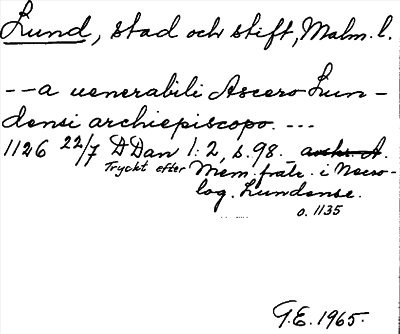 Lund, stad och stift, Malm. l.
--a uenerabili Ascero Lun-
densi archiepiscopo. ---
1126 22/7 DDan 1:2, s. 98. avskr. A.
Tryckt efter Mem. fratr. i Necro-
log. Lundense.
o. 1135
G.E. 1965.